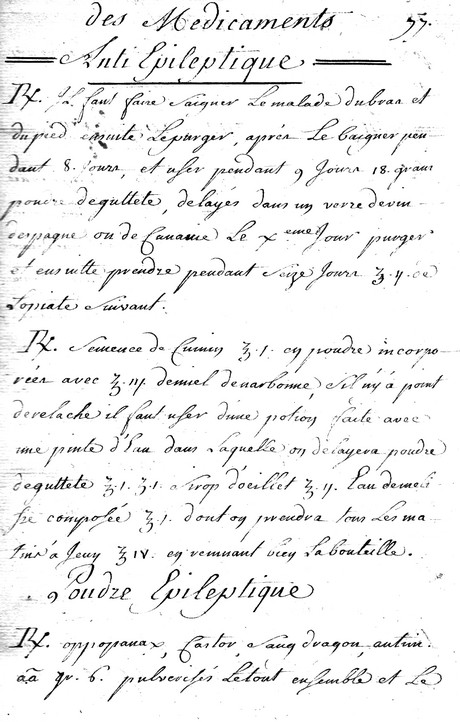 des Medicaments 77.
Anti Epileptique
℞. Il faut faire saigner Le malade dubras et
du pied ensuite Lepurger, apres Le baigner pen
dant 8. Jours, et user pendant 9 Jours 18. grains
poudre deguttete, delayés dans un verre devin
despagne ou de Canarie Le x.eme Jour purger
et ensuitte prendre pendant Seize Jours ʒ. ij. de
Lopiate Suivant.
℞. Semence de Cumin ʒ. i. en poudre incorpo
rées avec ʒ. iij. demiel denarbonne, s'il n'y a point
derelache il faut user dune potion faite avec
une pinte d'Eau dans Laquelle on delayera poudre
deguttete ʒ. i. ʒ. i. Sirop d'oeillet ʒ. ij. Eau demeli
sse composée ʒ. i. dont on prendra tous Les ma
tins a Jeun ʒ iv. en remuant bien La bouteille.
Poudre Epileptique
℞. oppopanax, Castor, Sang dragon, antim.
aã gr. 6. pulverisés Letout ensemble et Le